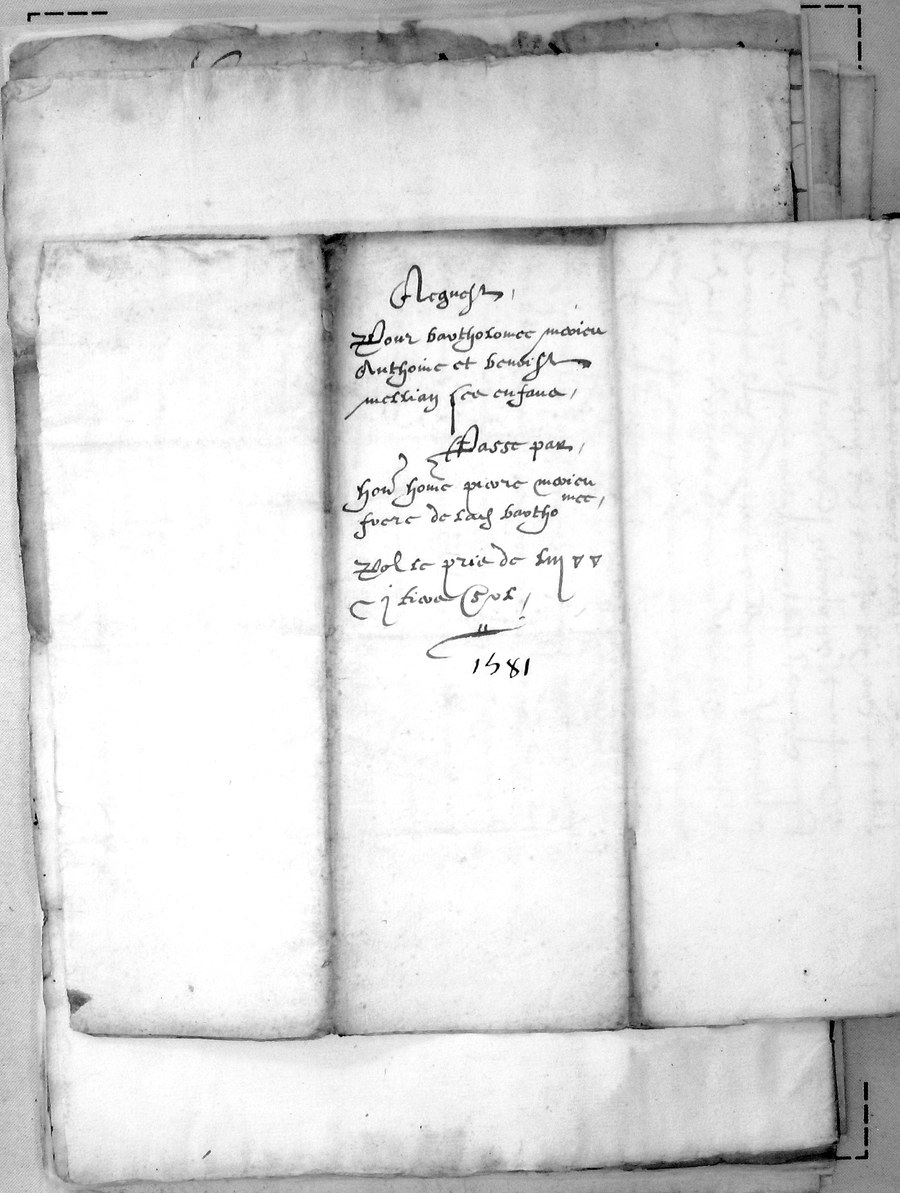 Acquest,
Pour bartholomee merieu
Anthoine et benoist
mellian ses enfans,
Passe par,
hon homme pierre merieu
frere de lad bartho
mee,
Pol le pris de
livres
1581